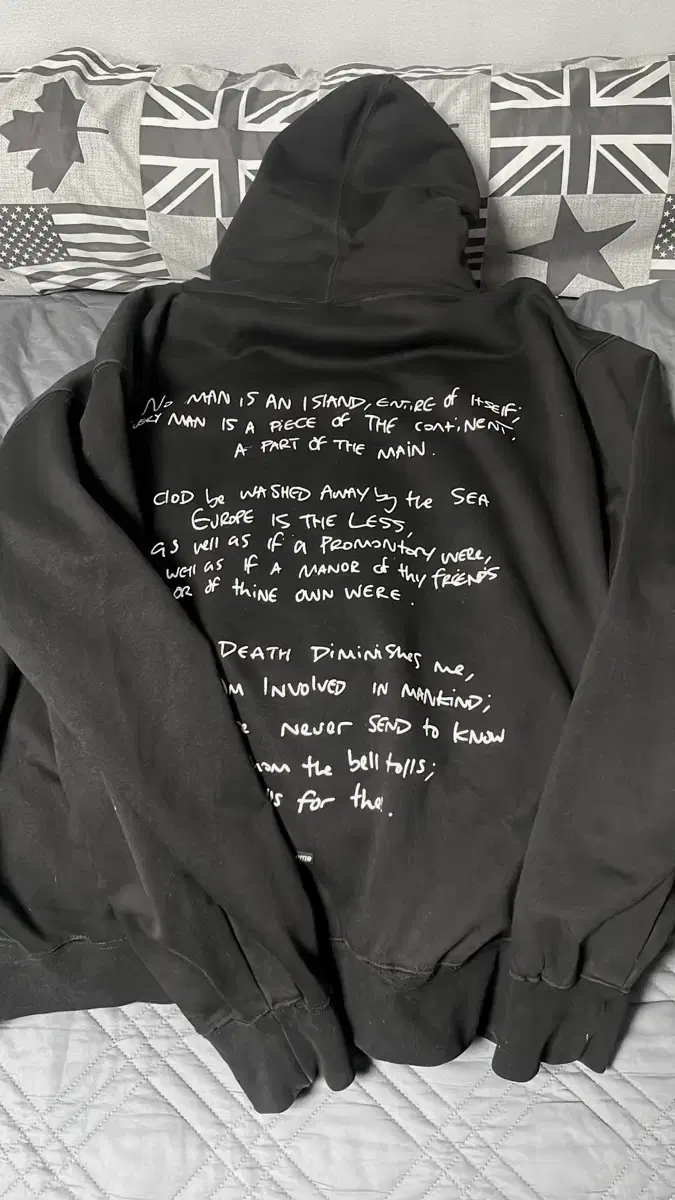 No MAN IS AN ISLAND, ENTIRE of ITSELF.
MAN IS A PIECE OF THE CONTINENT,
A PART OF THE MAIN.
CLOD be WASHED AWAY by the SEA
EUROPE IS THE LESS,
as well as if a PROMONTORY WERE,
WELL as IF A MANOR of thy FRIENDS
OR of thINE OWN WERE.
DEATH DiminiShes me,
INVOLVED IN MANKIND;
never SEND to KNOW
the bell tolls;
for the.